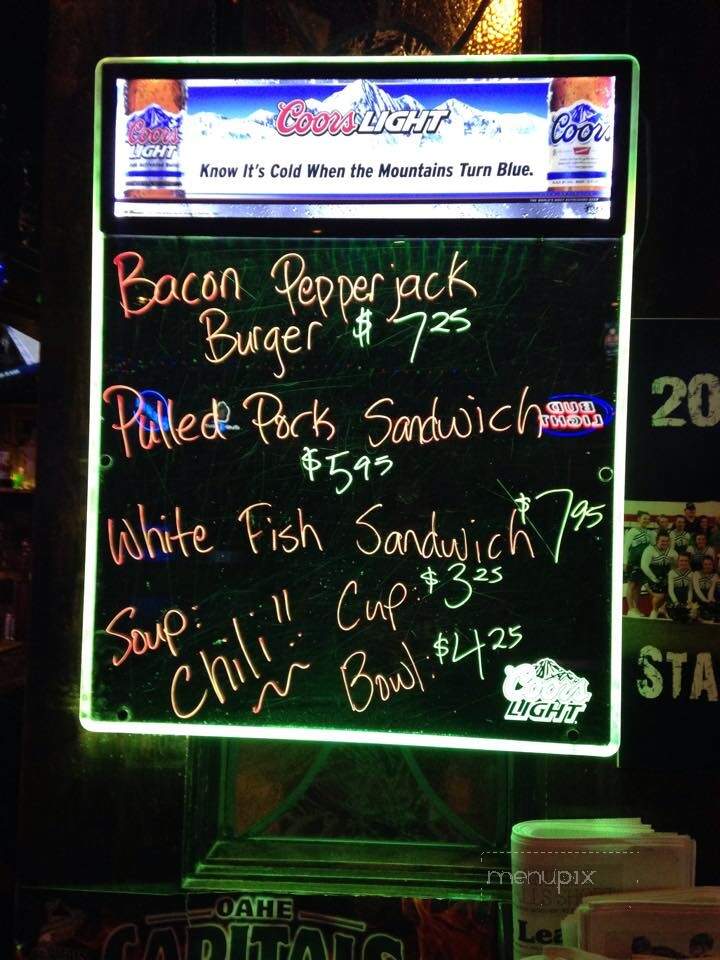 Coors LIGHT
Coors LIGHT
Coors
Know It's Cold When the Mountains Turn Blue.
Bacon Pepperjack
Burger $7.25
Pulled Pork Sandwich
$5.95
BUD
LIGHT
White Fish Sandwich $7.95
Soup: Chili!! Cup: $3.25
Bowl: $4.25
Coors
LIGHT
20
STA
menupix
OAHE
CAPITALS